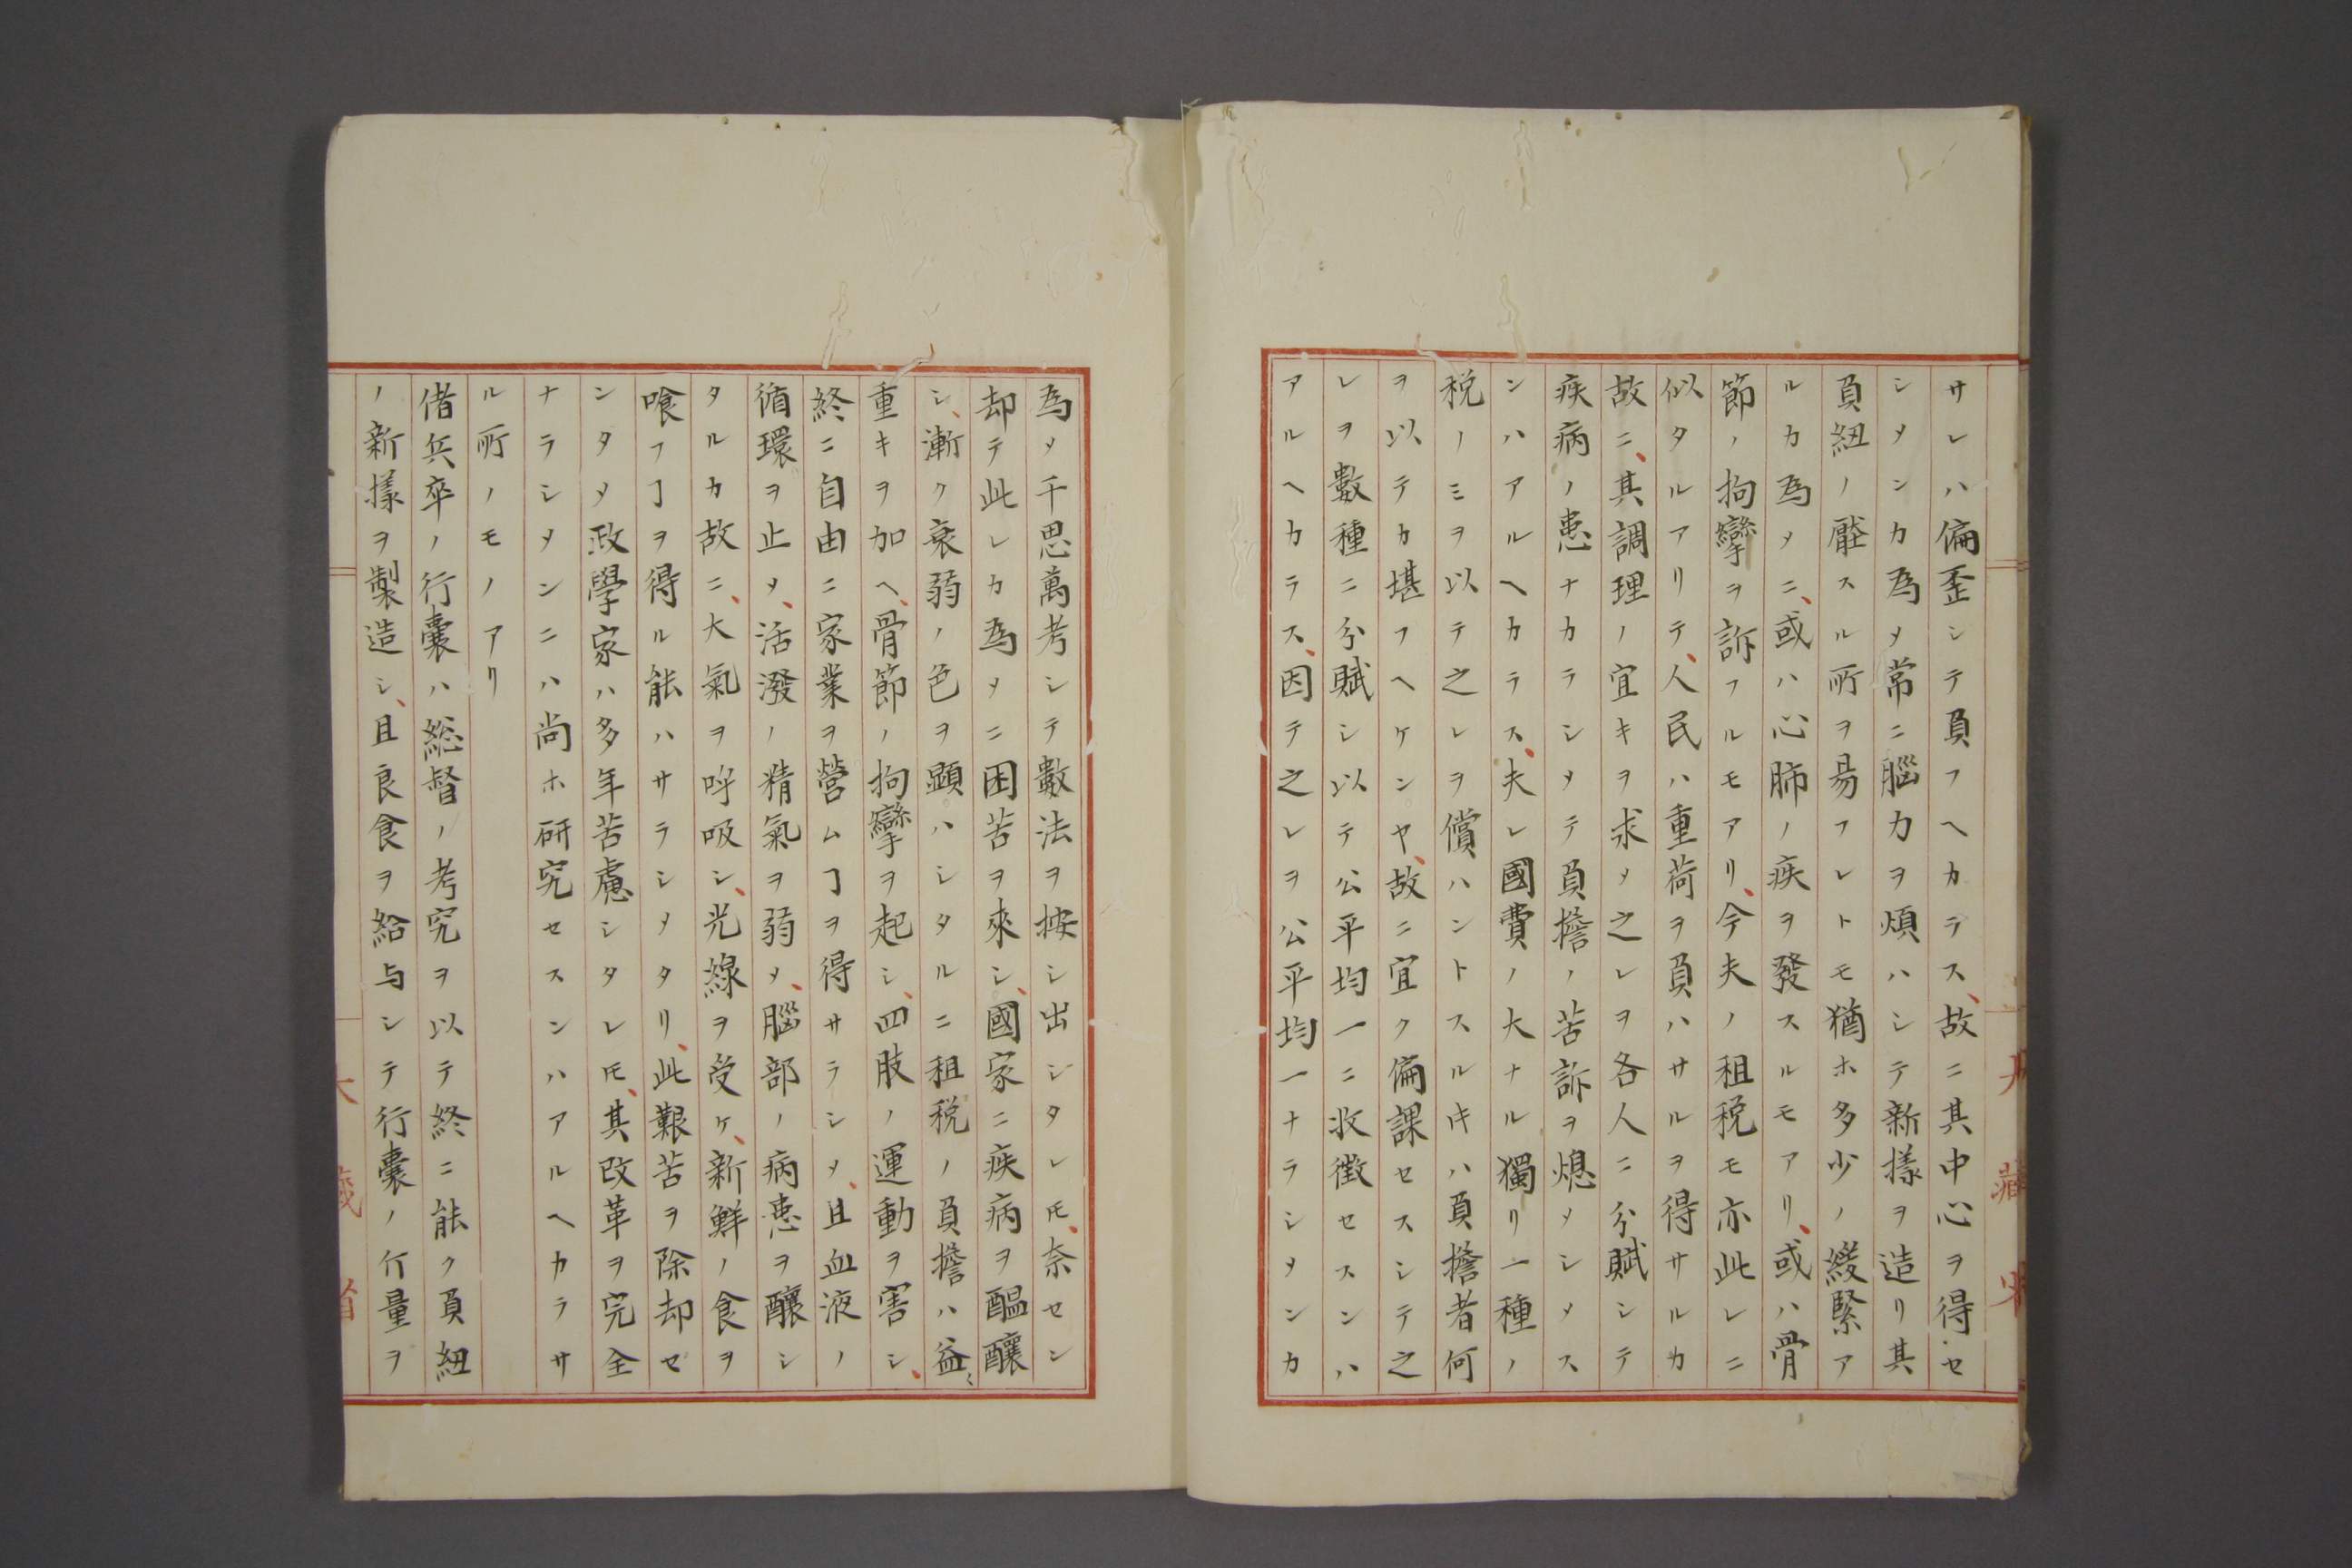 サレハ偏歪シテ負フヘカラス、故ニ其中心ヲ得セ
シメンカ為メ常ニ腦力ヲ煩ハシテ新様ヲ造リ其
負紐ノ壓スル所ヲ易フレトモ猶ホ多少ノ緩緊ア
ルカ為メニ、或ハ心肺ノ疾ヲ發スルモアリ、或ハ骨
節ノ拘攣ヲ訴フルモアリ、今夫ノ租税モ亦此レニ
似タルアリテ、人民ハ重荷ヲ負ハサルヲ得サルカ
故ニ、其調理ノ宜キヲ求メ之レヲ各人ニ分賦シテ
疾病ノ患ナカラシメテ負擔ノ苦訴ヲ熄メシメス
ンハアルヘカラス、夫レ國費ノ大ナル獨リ一種ノ
税ノミヲ以テ之レヲ償ハントスル𪜈ハ負擔者何
ヲ以テカ堪フヘケンヤ、故ニ宜ク偏課セスシテ之
レヲ數種ニ分賦シ以テ公平均一ニ收徴セスンハ
アルヘカラス、因テ之レヲ公平均一ナラシメンカ
為メ千思萬考シテ數法ヲ按シ出シタレ𪜈、奈セン
却テ此レカ為メニ困苦ヲ來シ、國家ニ疾病ヲ醞釀
シ、漸ク衰弱ノ色ヲ顕ハシタルニ租税ノ負擔ハ益〻
重キヲ加ヘ、骨節ノ拘攣ヲ起シ、四肢ノ運動ヲ害シ、
終ニ自由ニ家業ヲ營ムヿヲ得サラシメ、且血液ノ
循環ヲ止メ、活潑ノ精氣ヲ弱メ、腦部ノ病患ヲ釀シ
タルカ故ニ、大氣ヲ呼吸シ、光線ヲ受ケ、新鮮ノ食ヲ
喰フヿヲ得ル能ハサラシメタリ、此艱苦ヲ除却セ
ンタメ政學家ハ多年苦慮シタレ𪜈、其改革ヲ完全
ナラシメンニハ尚ホ研究セスンハアルヘカラサ
ル所ノモノアリ
偖兵卒ノ行嚢ハ総督ノ考究ヲ以テ終ニ能ク負紐
ノ新樣ヲ製造シ、且良食ヲ給与シテ行嚢ノ斤量ヲ